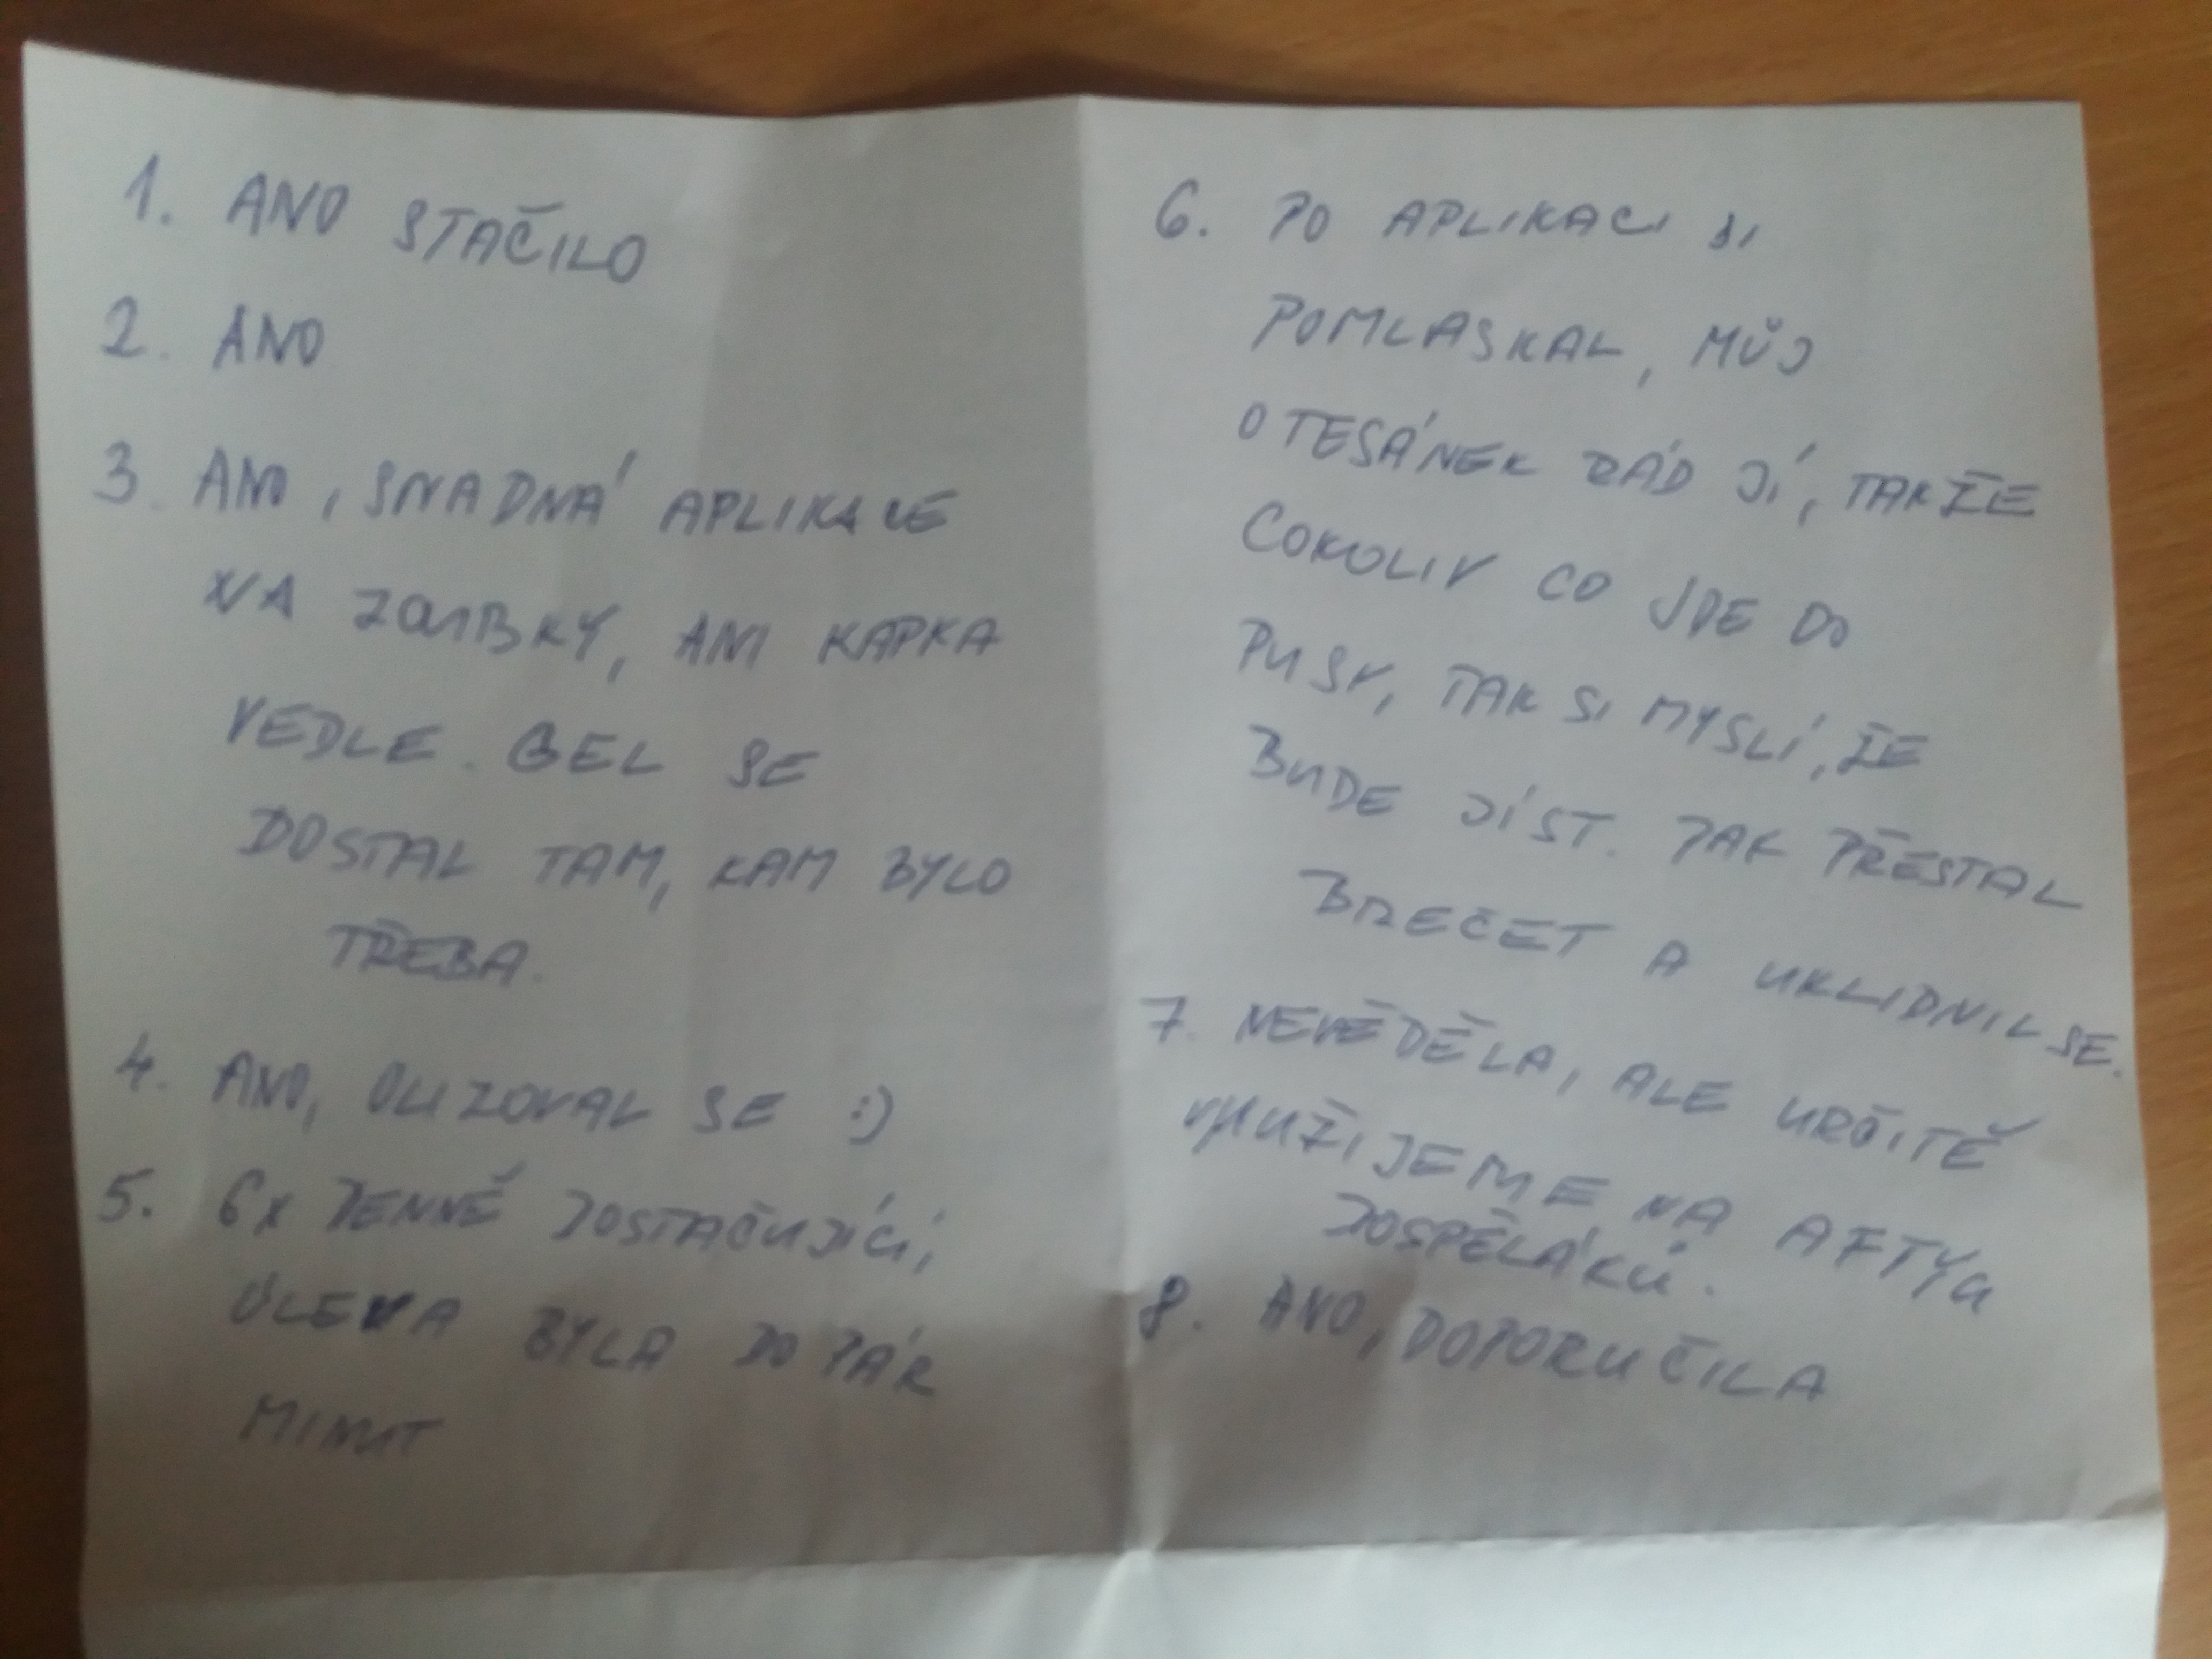 1. ANO STAČILO
2. ANO
3. ANO, SNADNÁ APLIKACE
NA ZOUBKY, ANI KAPKA
VEDLE. GEL SE
DOSTAL TAM, KAM BYLO
TŘEBA.
4. ANO, OLIZOVAL SE :)
5. 6x DENNĚ DOSTAČUJÍCÍ,
ÚLEVA BYLA DO PÁR
MINUT
6. PO APLIKACI SI
POMLASKAL, MŮJ
OTESÁNEK RÁD JÍ, TAKŽE
COKOLIV CO JDE DO
PUSY, TAK SI MYSLÍ, ŽE
BUDE JÍST. PAK PŘESTAL
BREČET A UKLIDNIL SE.
7. NEVĚDĚLA, ALE URČITĚ
VYUŽIJEME NA AFTY U
DOSPĚLÁKŮ.
8. ANO, DOPORUČILA